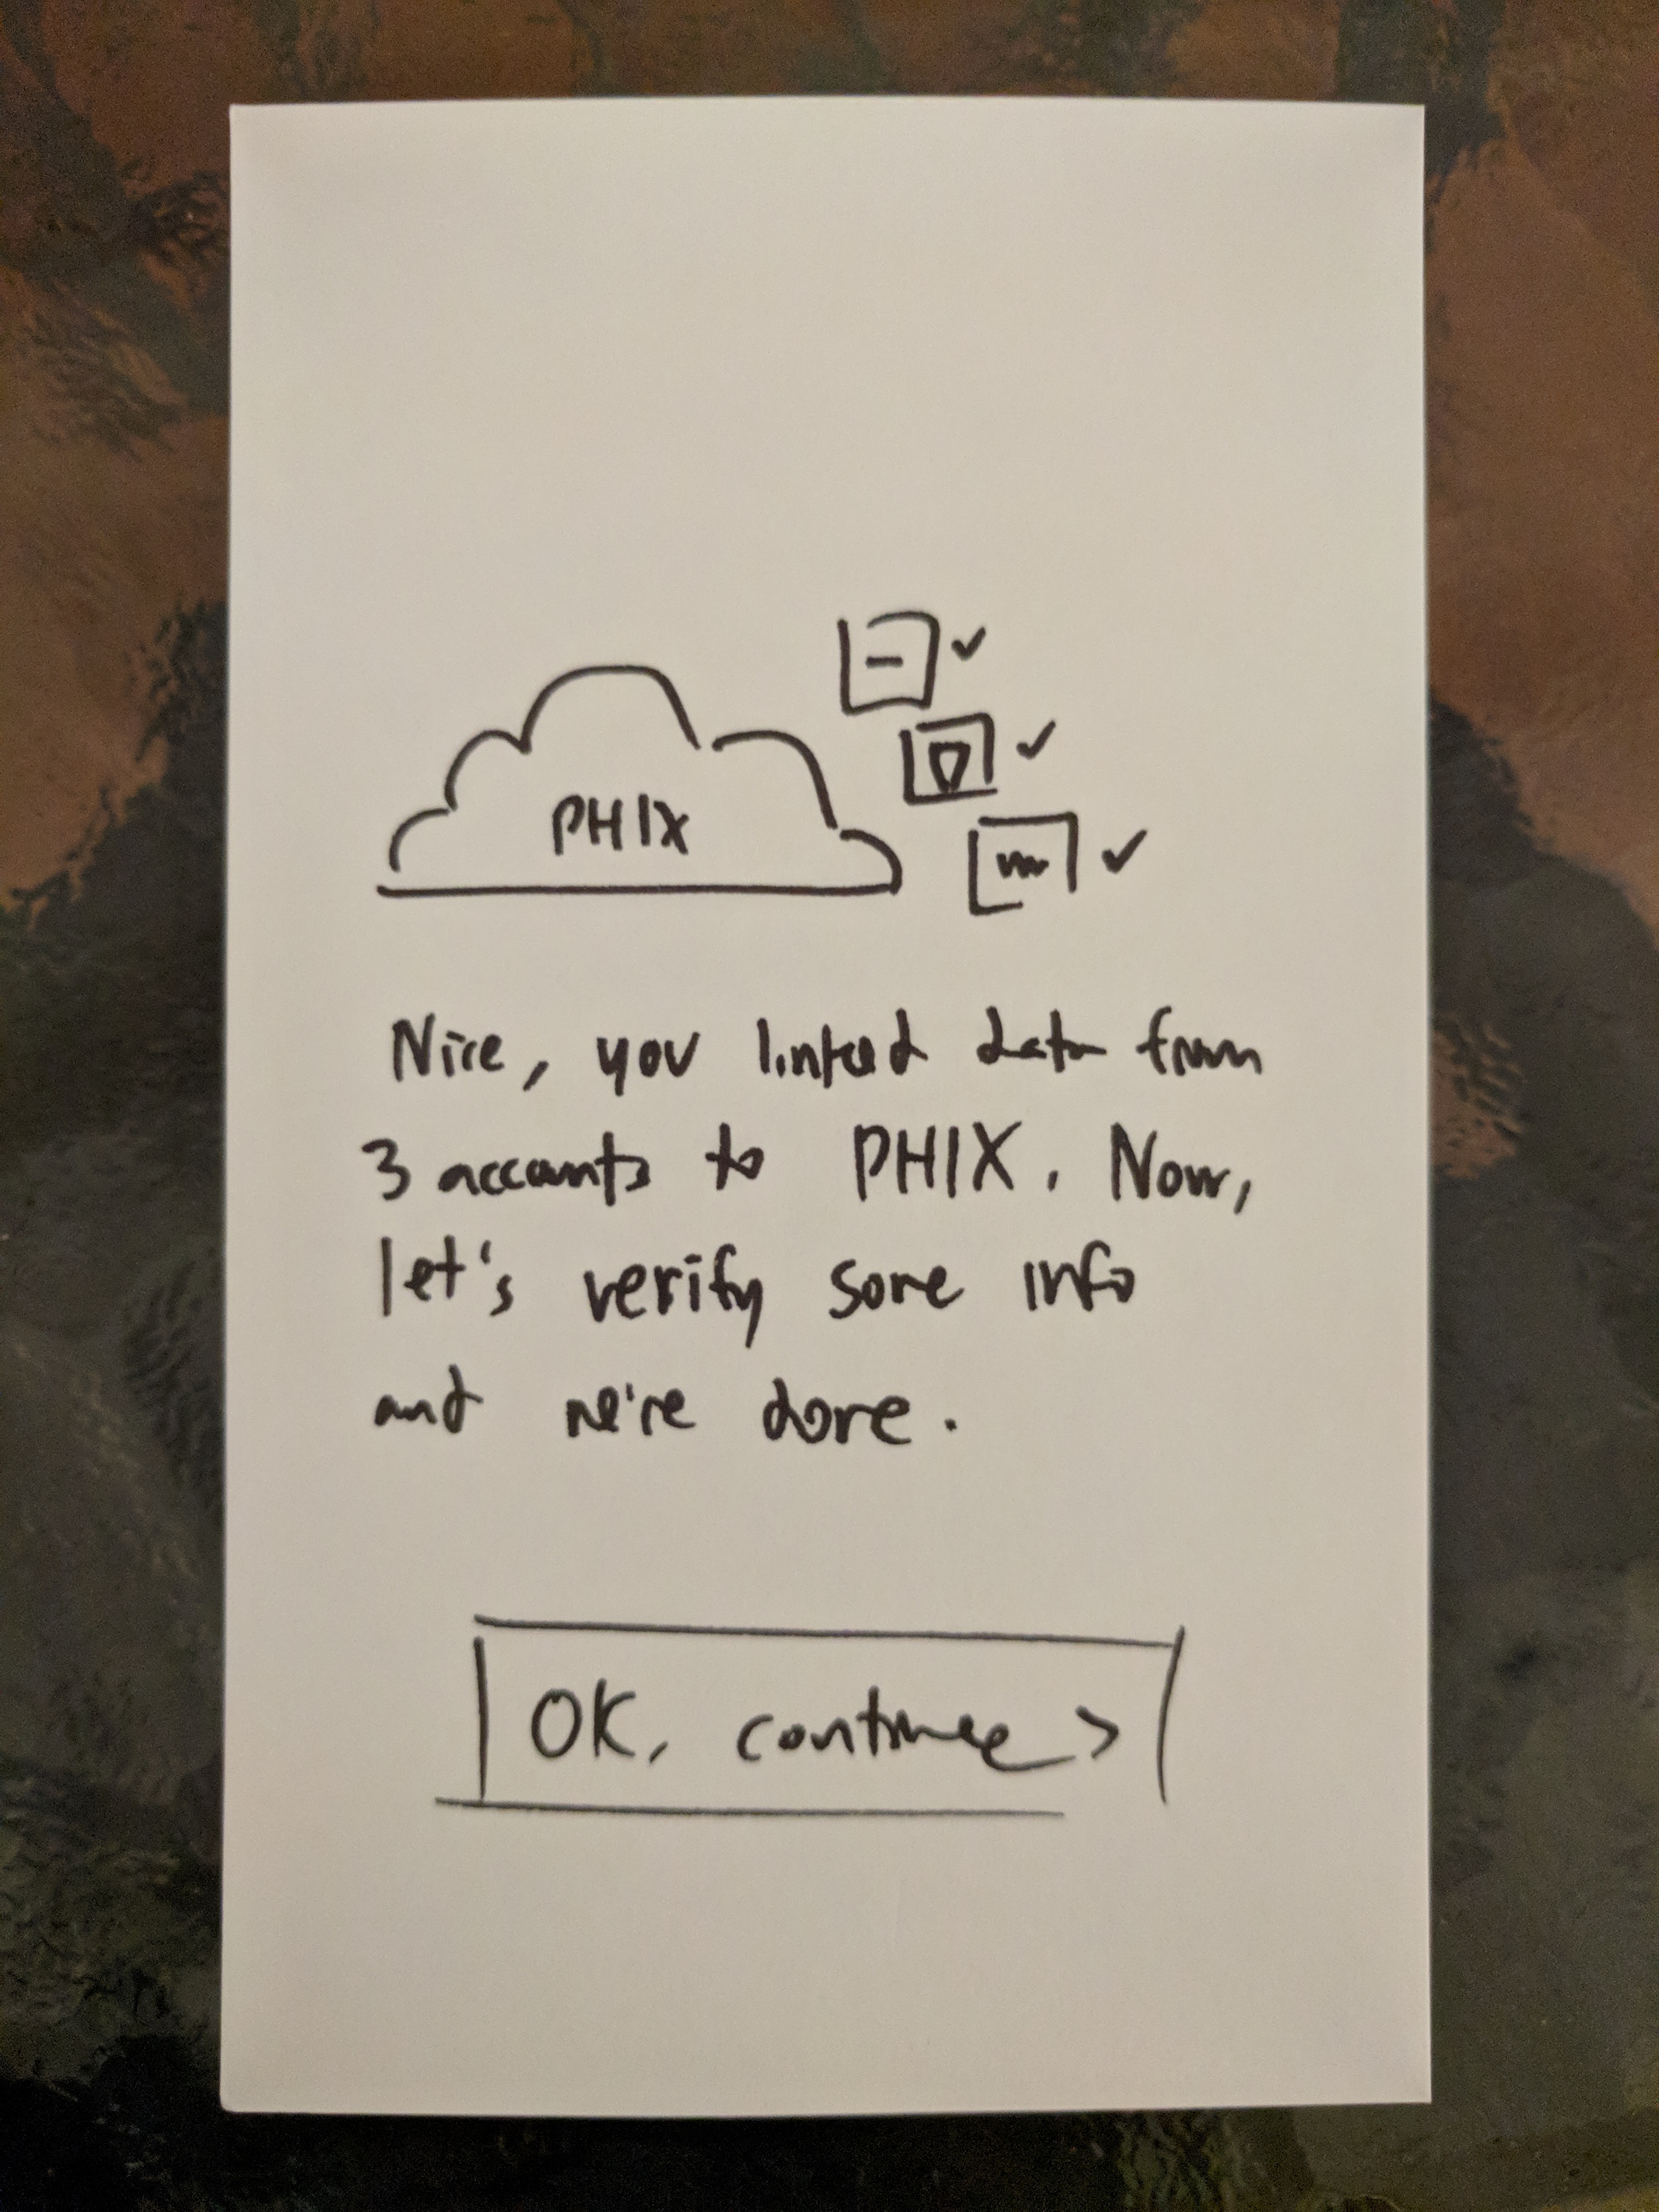 PHIX
Nice, you linked data from
3 accounts to PHIX. Now,
let's verify some info
and we're done.
OK, continue >